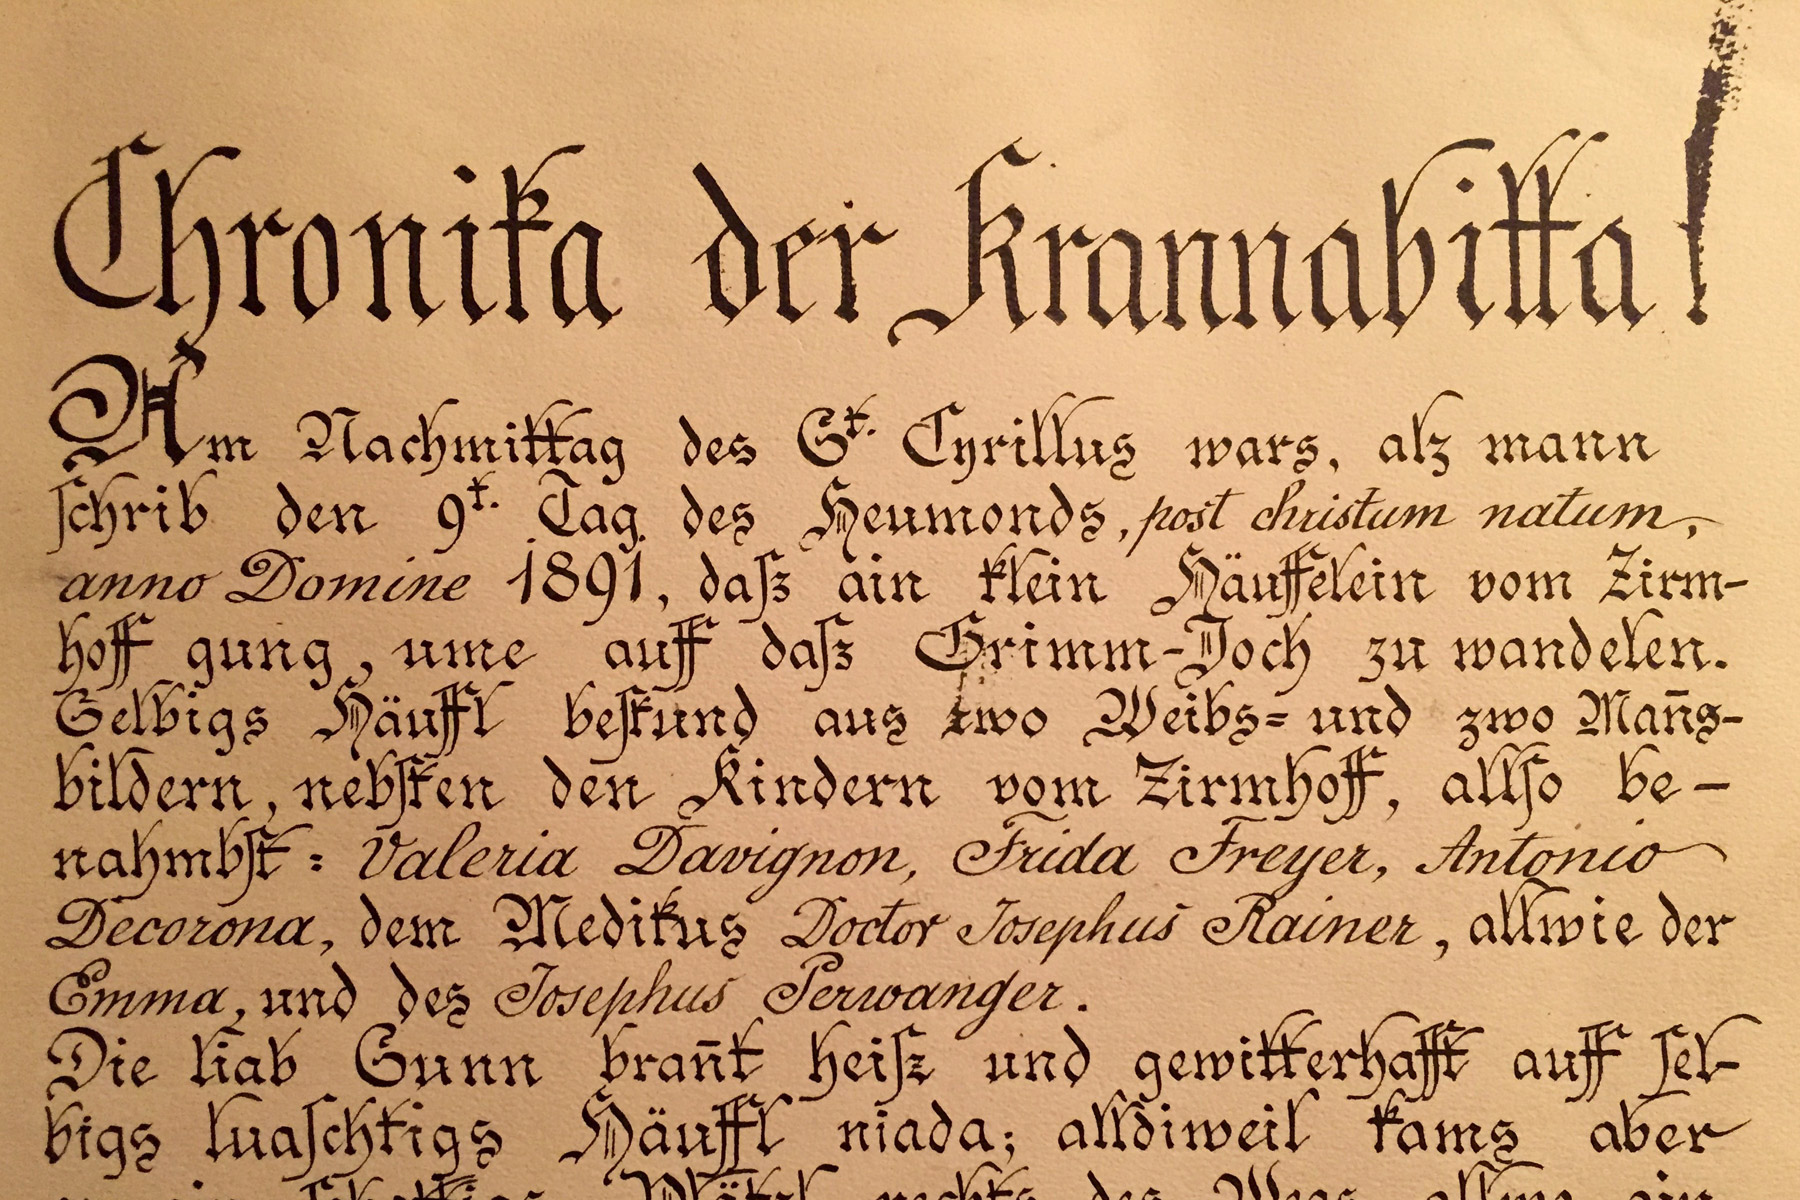 Chronika der Krannabitta!
Am Nachmittag des St. Cyrillus wars, alz mann
schrib den 9t. Tag des Heumonds, post christum natum,
anno Domine 1891, daſz ain klein Häuffelein vom Zirm-
hoff gung, ume auff daſz Grimm-Joch zu wandelen.
Selbigs Häuffl beſtund aus zwo Weibs= und zwo Man̄s-
bildern, nebſten den Kindern vom Zirmhoff, allſo be-
nahmbſt: Valeria Davignon, Frida Freyer, Antonio
Decorona, dem Medikus Doctor Josephus Rainer, allwie der
Emma, und des Josephus Perwanger.
Die liab Sunn bran̄t heiſz und gewitterhafft auff ſel-
bigs luaſchtigs Häuffl niada; alldiweil kams aber
ſchattigs Plätzl rechts des Wegs